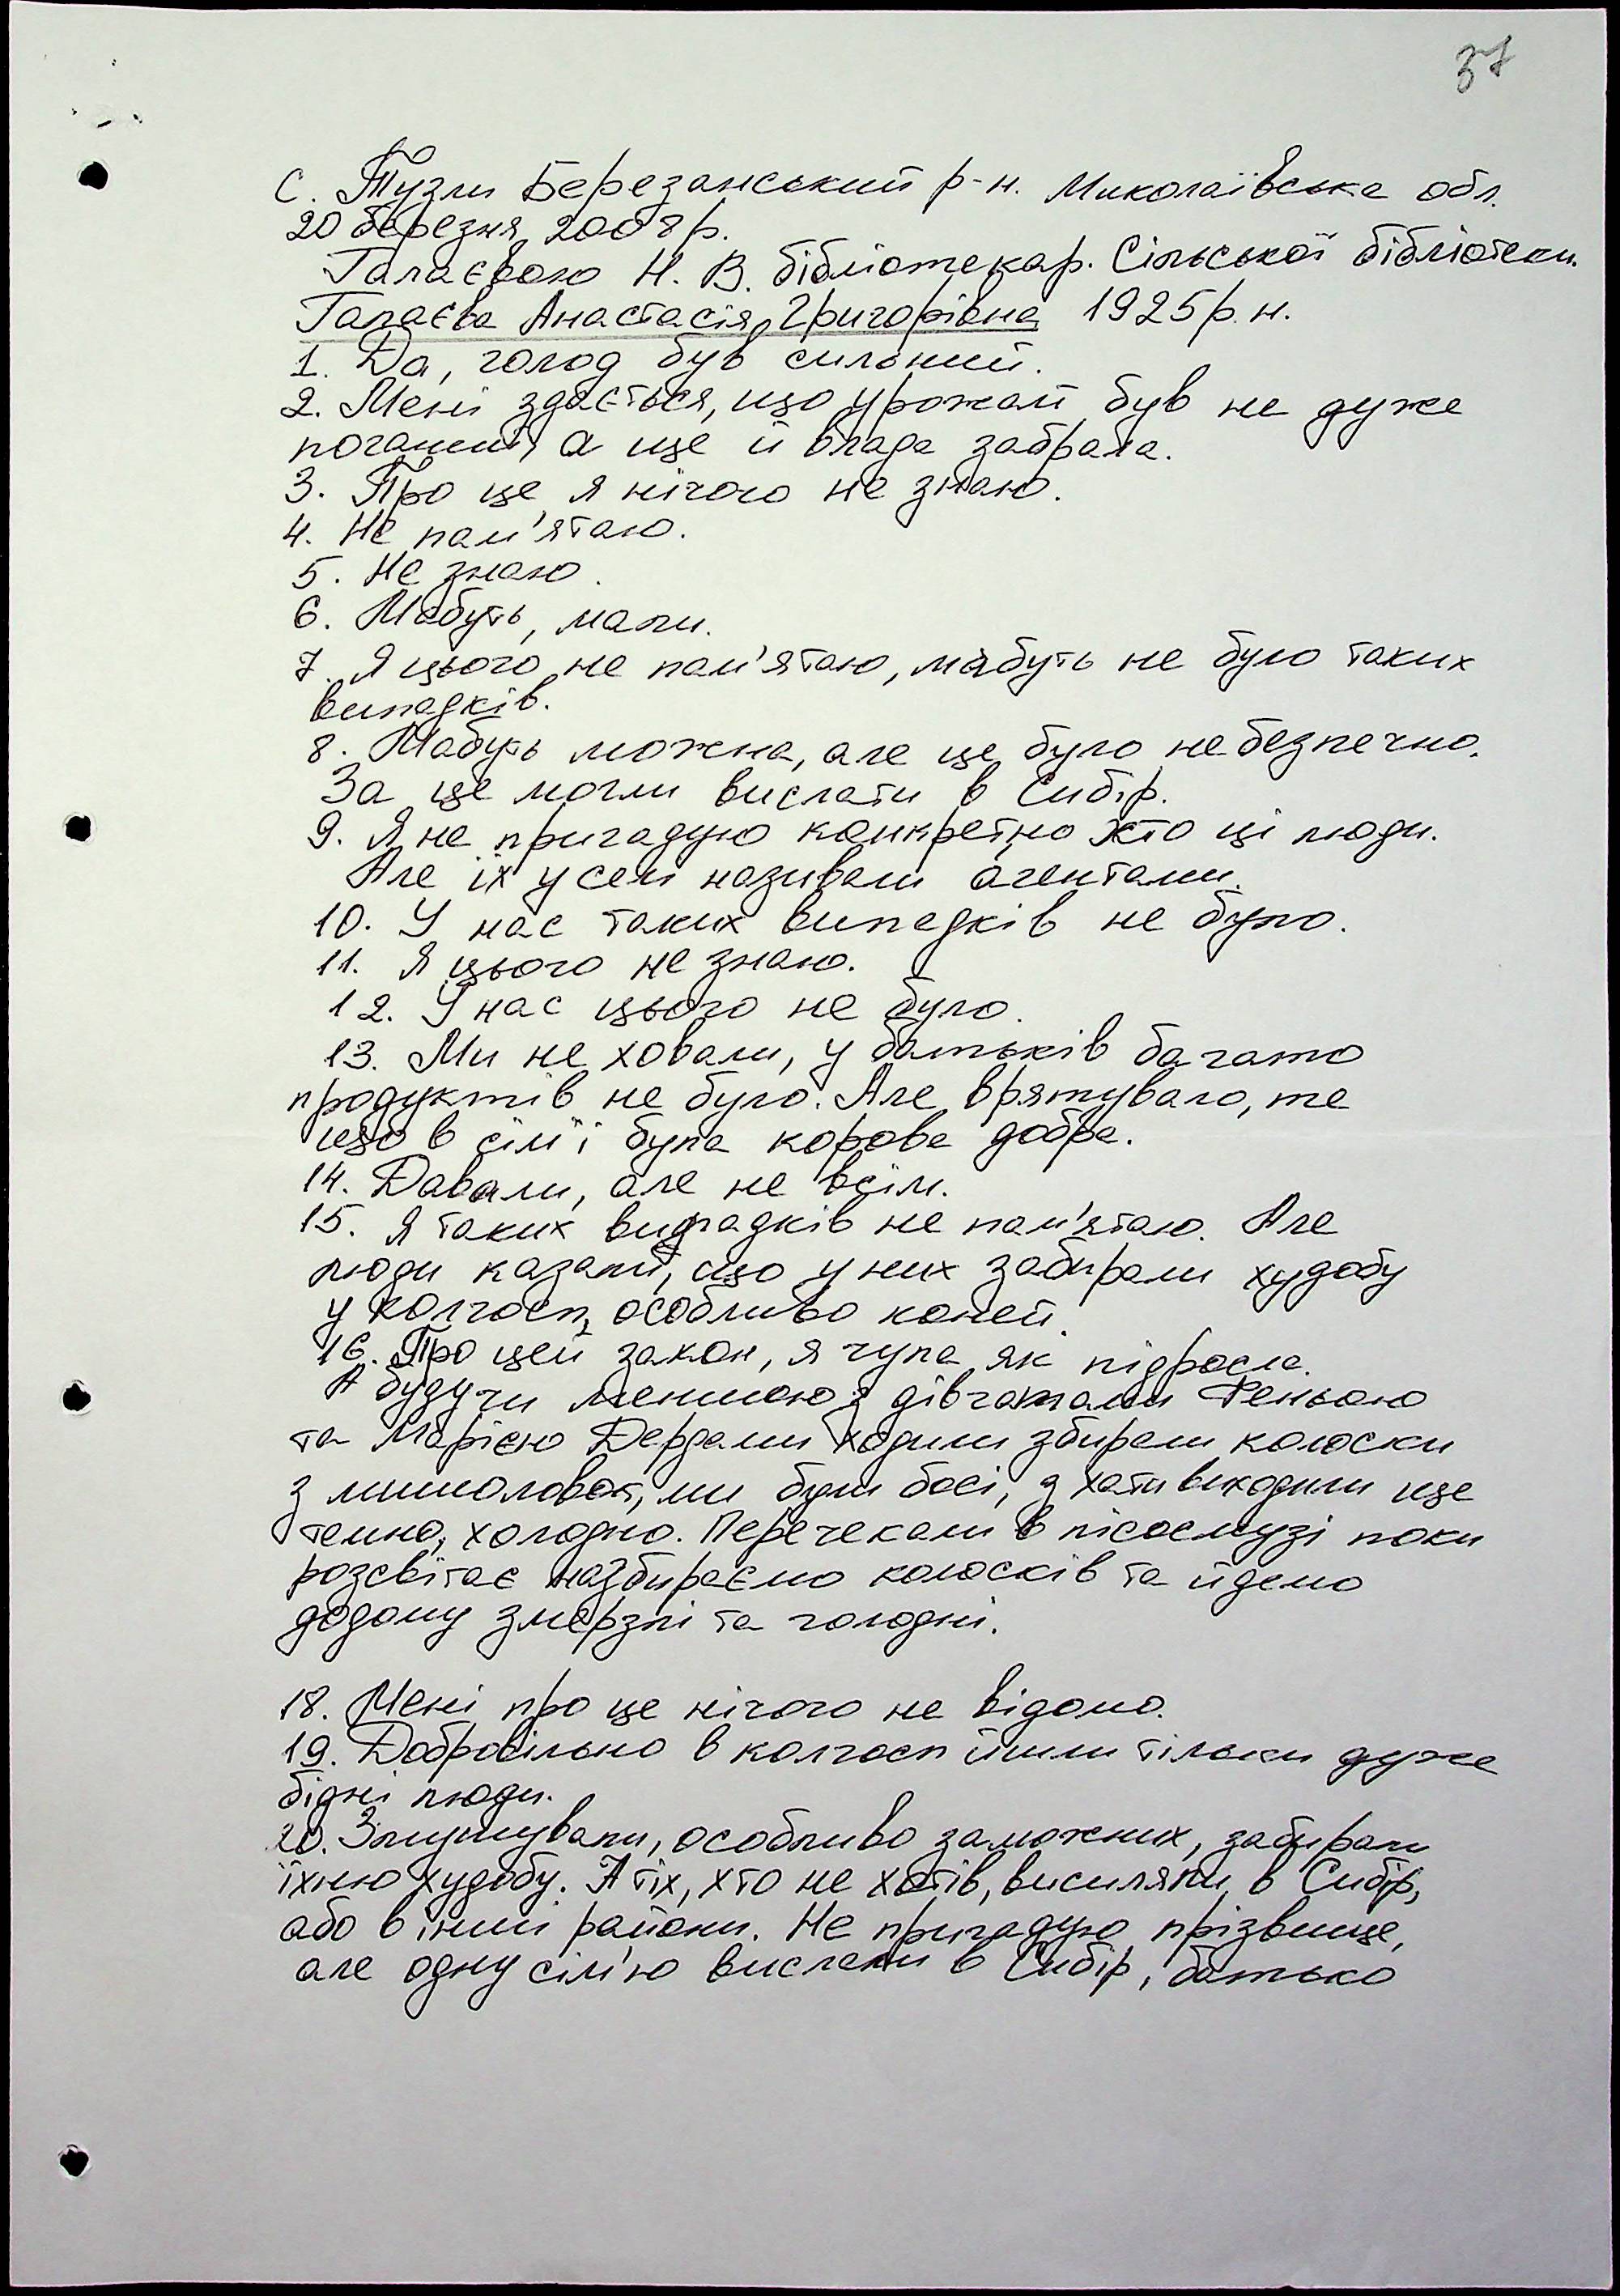 37
С. Тузли Березанський р-н. Миколаївська обл.
20 березня 2008р.
Галаєвою Н. В. бібліотекар. Сільської бібліотеки.
Галаєва Анастасія Григорівна 1925р.н.
1. Да, голод був сильний.
2. Мені здається, що урожай був не дуже
поганий, а ще й влада забрала.
3. Про це я нічого не знаю.
4. Не пам'ятаю.
5. Не знаю.
6. Мабуть, мали.
7. Я цього не пам'ятаю, мабуть не було таких
випадків.
8. Мабуть можна, але це було небезпечно.
За це могли вислати в Сибір.
9. Я не пригадую конкретно хто ці люди.
Але їх у селі називали агентами.
10. У нас таких випадків не було.
11. Я цього не знаю.
12. У нас цього не було.
13. Ми не ховали, у батьків багато
продуктів не було. Але врятувало, те
що в сім'ї була корова добра.
14. Давали, але не всім.
15. Я таких випадків не пам'ятаю. Але
люди казали, що у них забирали худобу
у колгосп, особливо коней.
16. Про цей закон, я чула як підросла.
А будучи меншою з дівчатами Феньою
та Марією Дердами ходили збирали колоски
з , ми були босі, з хати виходили ще
темно, холодно. Перечекали в лісосмузі поки
розсвітає назбираємо колосків та йдемо
додому змерзлі та голодні.
18. Мені про це нічого не відомо.
19. Добровільно в колгосп йшли тільки дуже
бідні люди.
20. Змушували, особливо заможних, забирали
їхню худобу. А тіх, хто не хотів, висиляли в Сибір,
або в інші райони. Не пригадую прізвище,
але одну сім'ю вислали в Сибір, батько